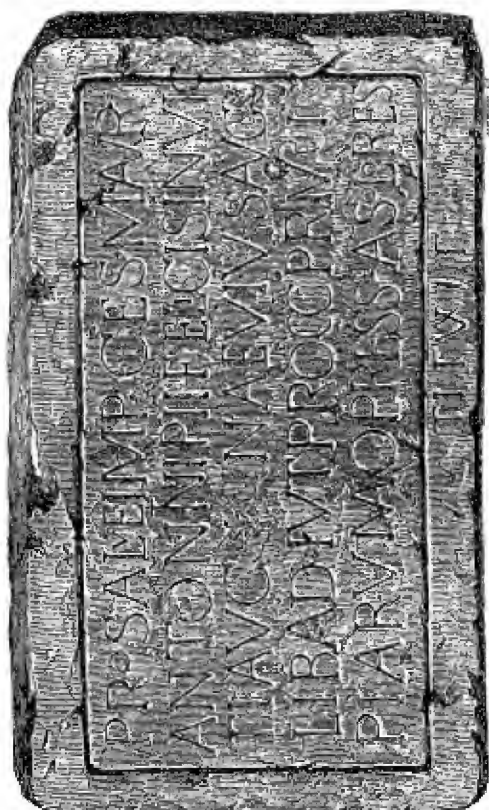 PRO SAL E IMP CES M AVR
ANTONINI PII FELICIS INVIC
TI AVG NAEVIVS AVG
LIB ADIVT PROCC PRINCI
PIA RVINA OPRESS A SOL RES